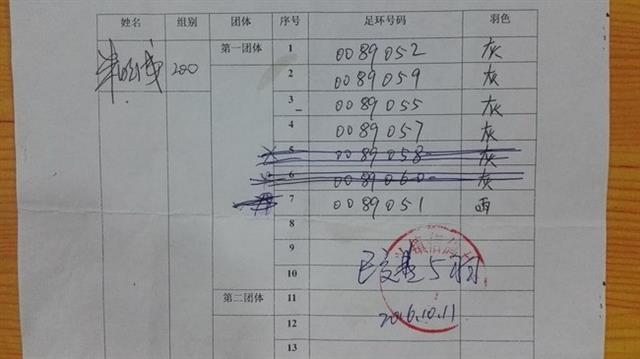 姓名 组别 团体 序号 足环号码 羽色
200 第一团体 1 0089052 灰
2 0089059 灰
3 0089055 灰
4 0089057 灰
5 0089058 灰
6 0089060 灰
7 0089051 雨
8
9
10
已交费5羽
第二团体 11
2016.10.11
12
13